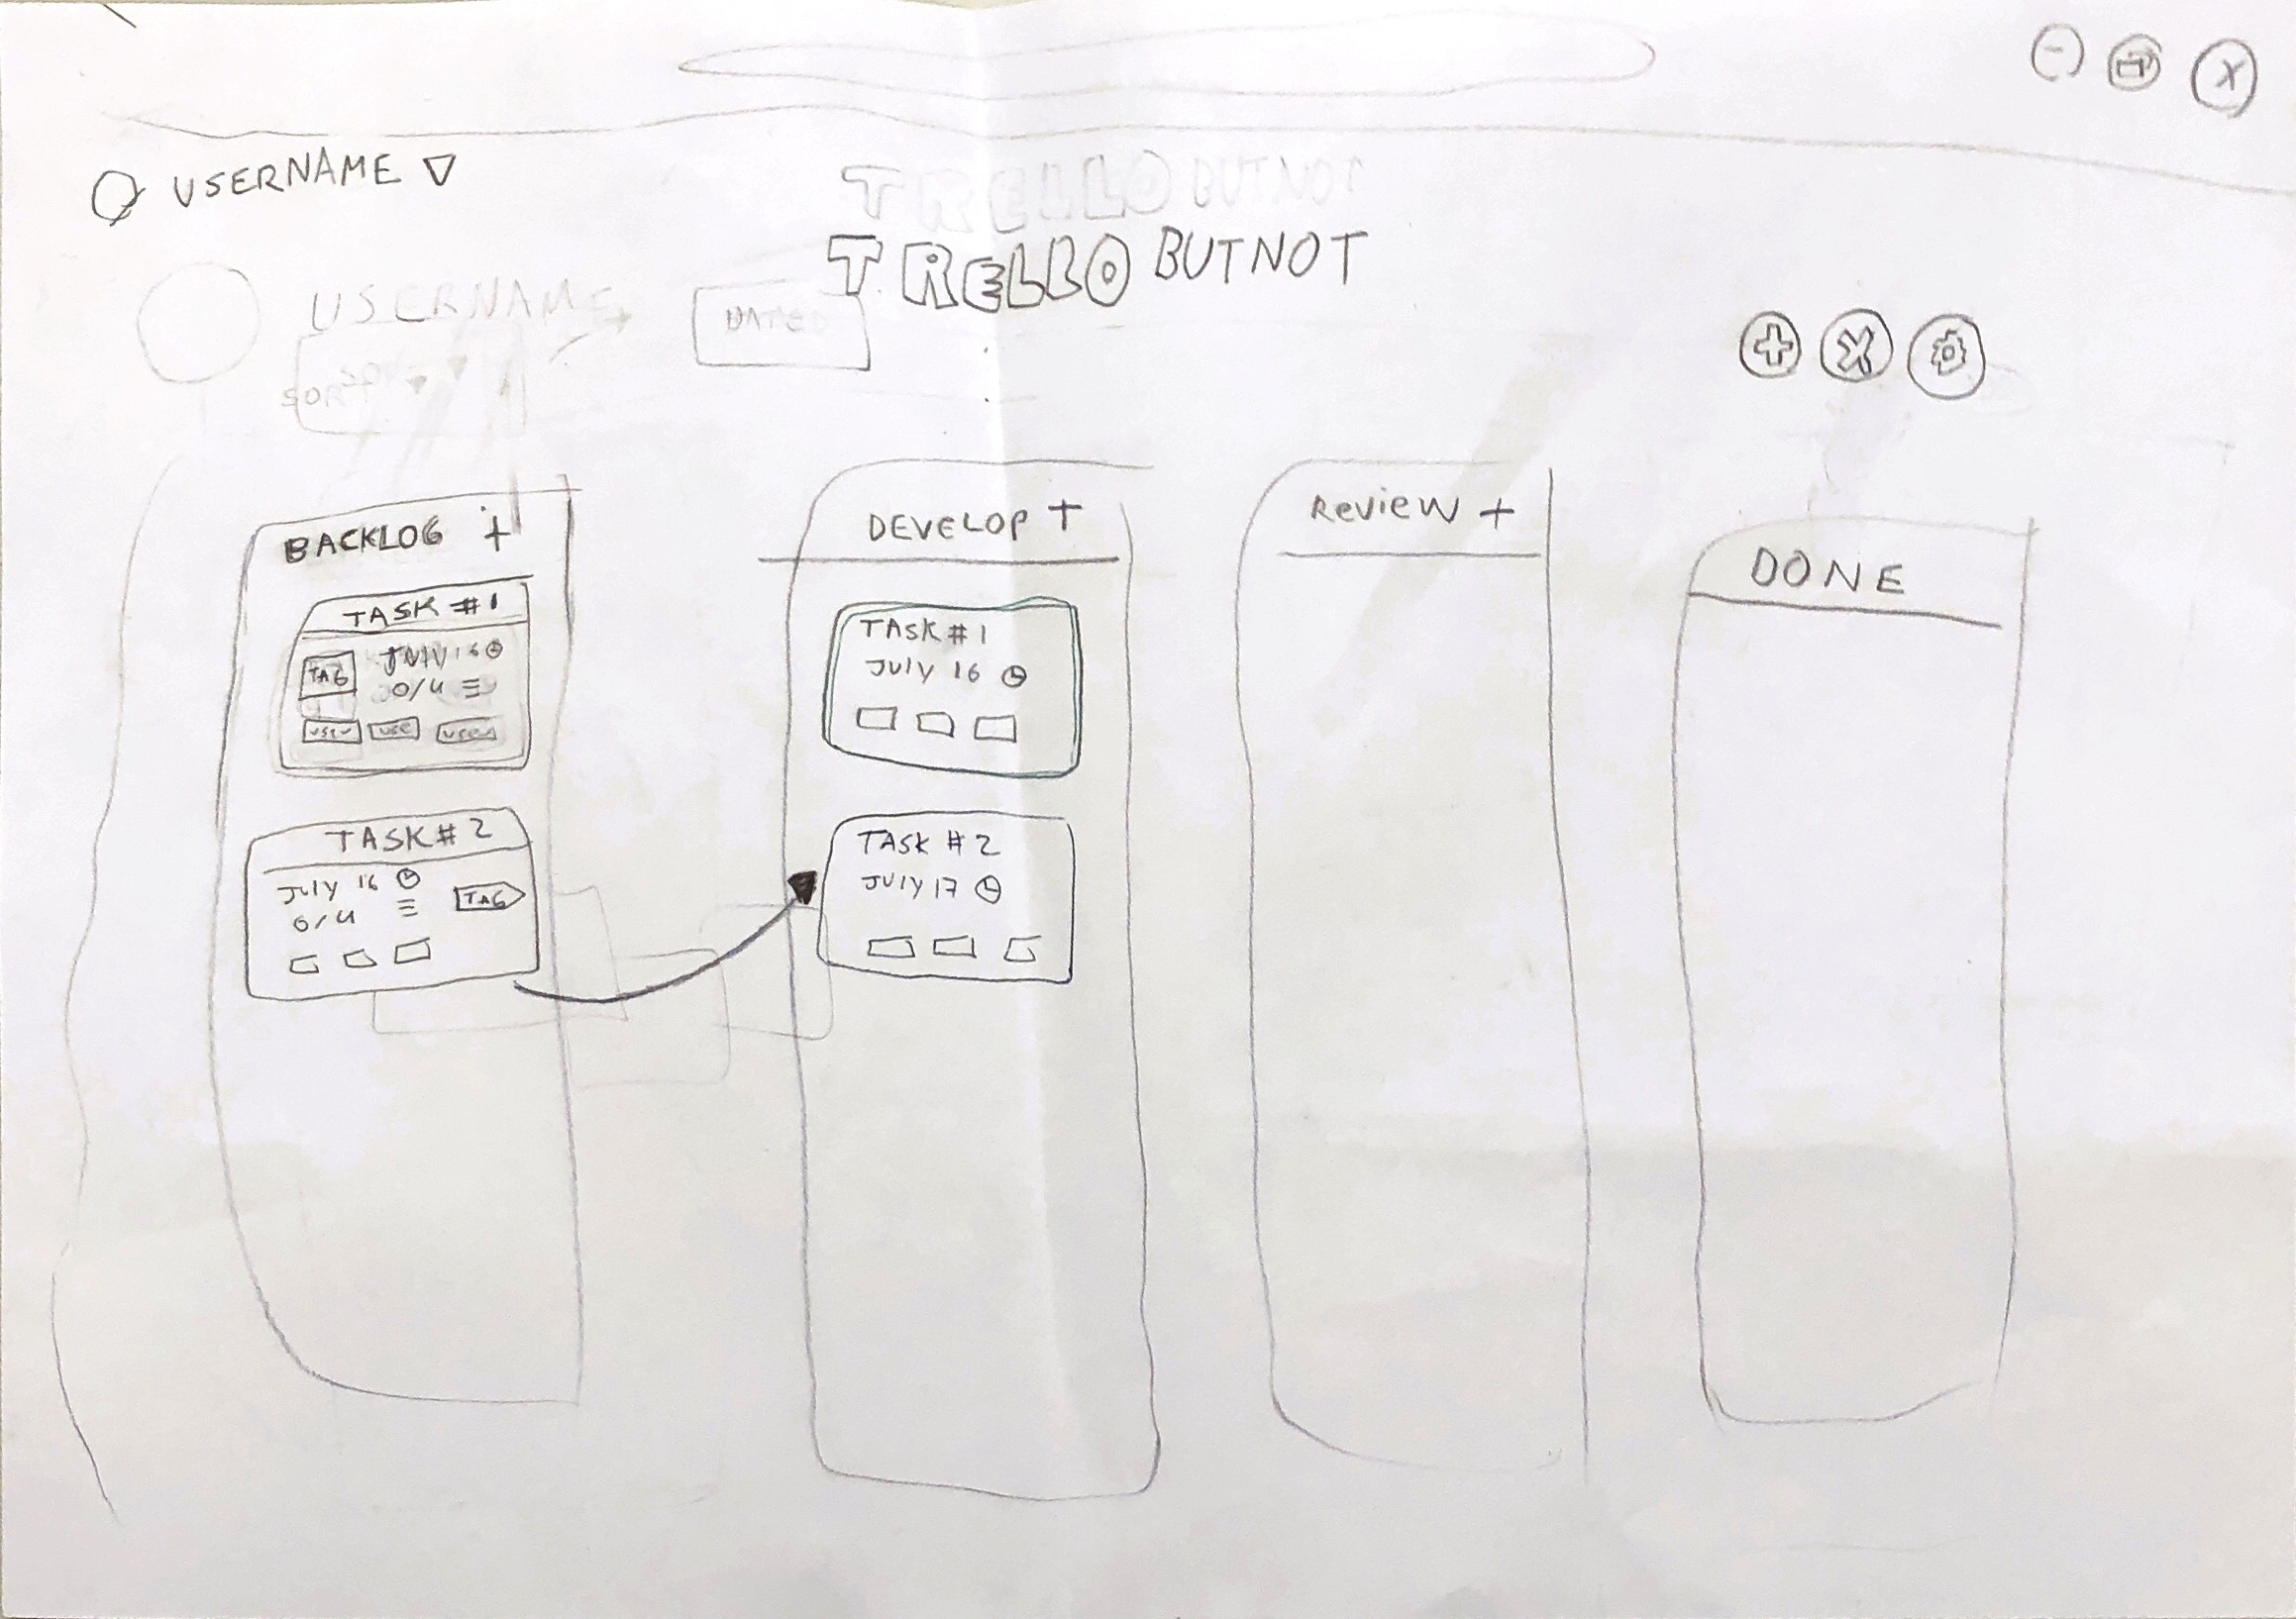 USERNAME
TRELLO BUTNOT
TRELLO BUTNOT
USERNAME
DATE
SORT
BACKLOG +
TASK #1
TAG
JULY 16
0/4
USER
USE
USER
TASK #2
JULY 16
0/4
TAG
DEVELOP +
TASK #1
JULY 16
TASK #2
JULY 17
ReVieW +
DONE